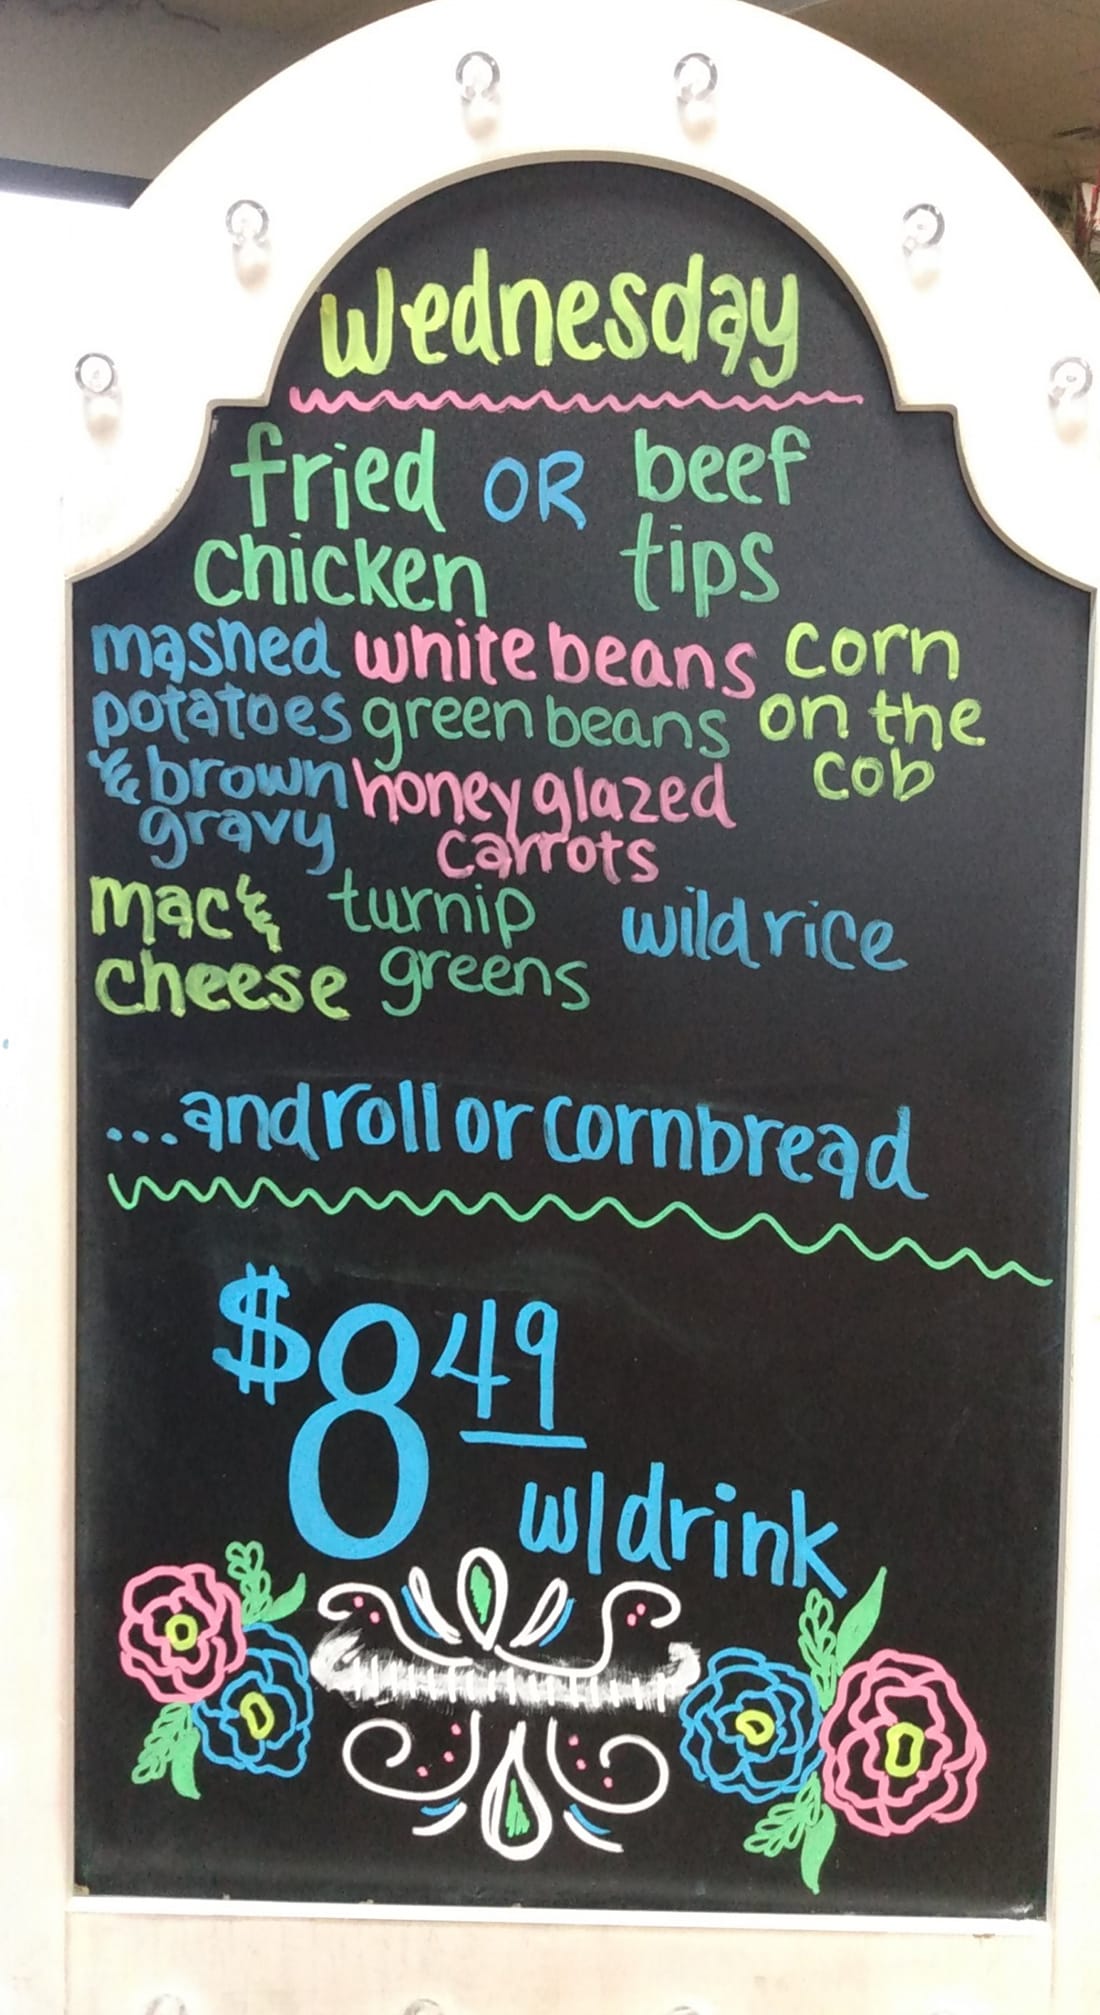 Wednesday
fried OR beef
chicken tips
mashed white beans corn
potatoes green beans on the
& brown honey glazed cob
gravy carrots
mac & turnip wild rice
cheese greens
...and roll or cornbread
$8 49
w/drink